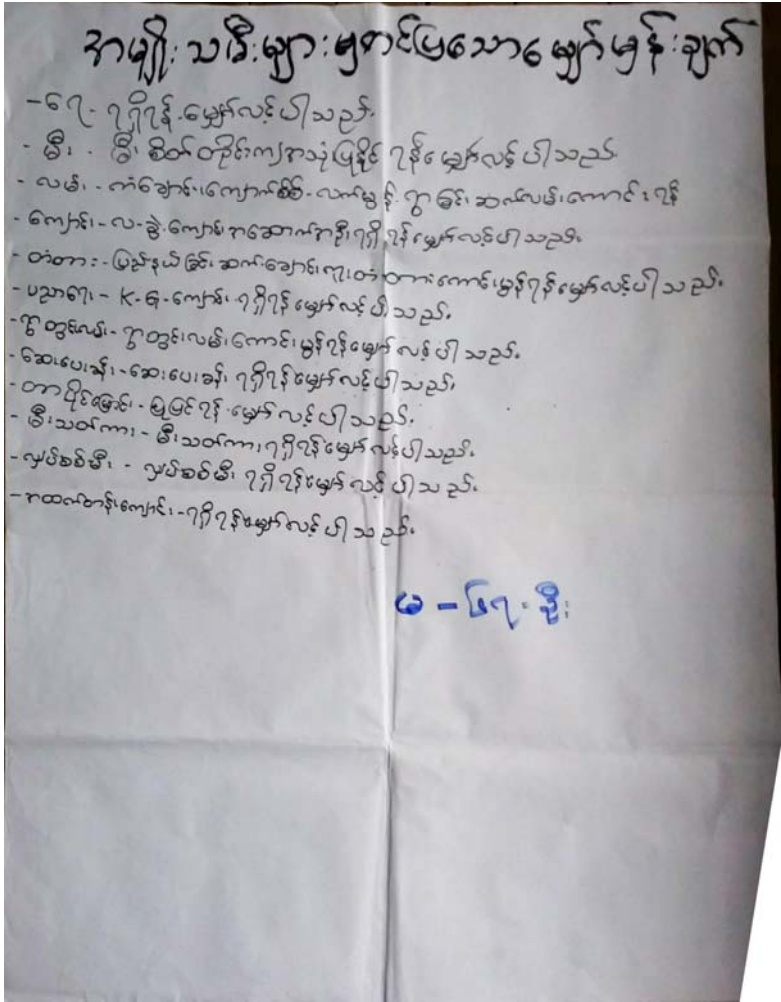 အမျိုးသမီးများမှတင်ပြသောမျှော်မှန်းချက်
-ရေ- ရရှိရန် မျှော်လင့်ပါသည်။
- မီး - မီး စိတ်တိုင်းကျအသုံးပြုနိုင် ရန်မျှော်လင့်ပါသည်။
- လမ်း - ကံချောင်း၊ကျောက်စစ်-လက်မွန် ရွာခြင်း ဆက်လမ်းကောင်း ရန်
- ကျောင်း-လ-ခွဲ-ကျောင်းအဆောက်အဦးရရှိရန်မျှော်လင့်ပါသည်။
- တံတား - မြည်နယ်ခြင်း ဆက် ချောင်းကူးတံတားကောင်းမွန်ရန်မျှော်လင့်ပါသည်။
- ပညာရေး - K-G-ကျောင်း ရရှိရန်မျှော်လင့်ပါသည်။
- ရွာတွင်းလမ်း - ရွာတွင်းလမ်းကောင်းမွန်ရန်မျှော်လင့်ပါသည်။
- ဆေးပေးခန်း - ဆေးပေးခန်း ရရှိရန်မျှော်လင့်ပါသည်။
- တာပိုင်မြောင်း - ပြုပြင်ရန် မျှော်လင့်ပါသည်။
- မီးသတ်ကား - မီးသတ်ကား ရရှိရန်မျှော်လင့်ပါသည်။
- လျှပ်စစ်မီး - လျှပ်စစ်မီး ရရှိရန်မျှော်လင့်ပါသည်။
- အထက်တန်းကျောင်း - ရရှိရန်မျှော်လင့်ပါသည်။
မ - ဦး